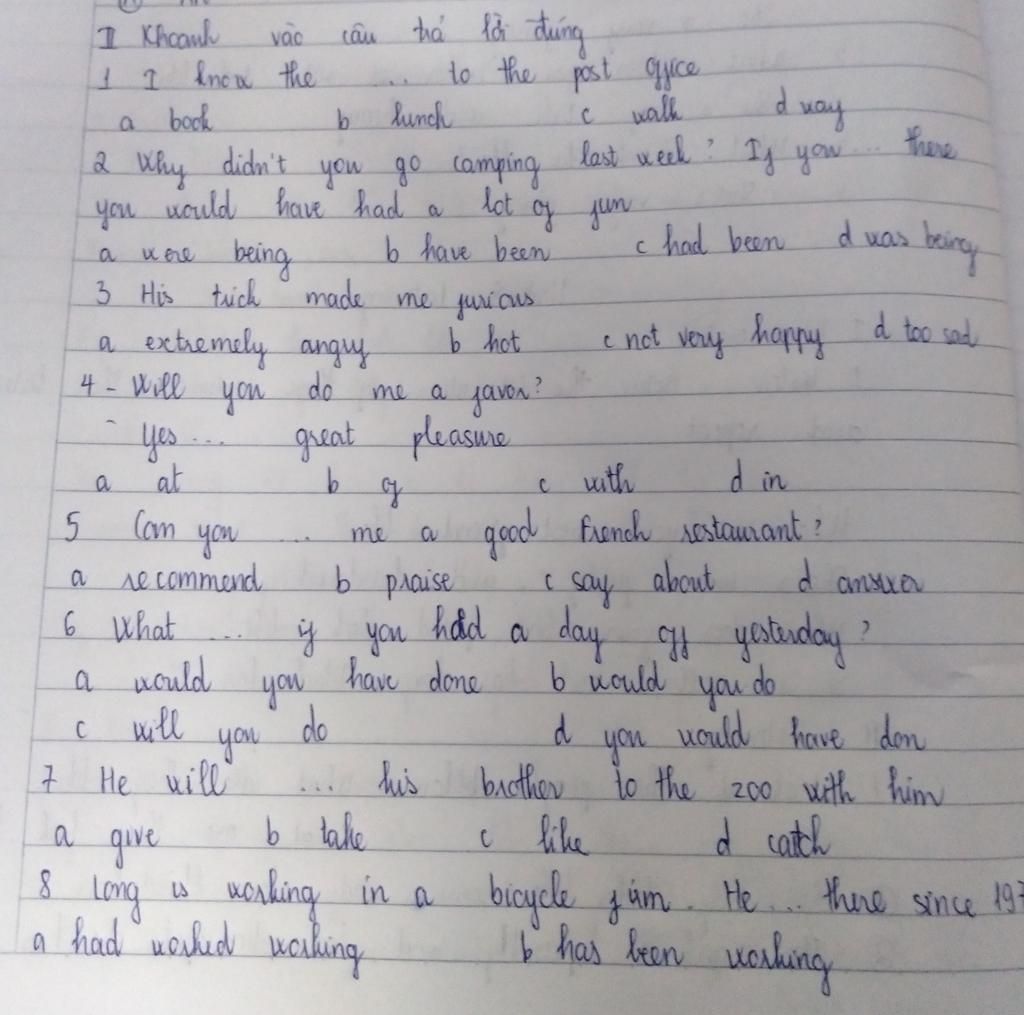 II Khoanh vào câu trả lời đúng
1 I know the ... to the post office
a book b lunch c walk d way
2 Why didn't you go camping last week? If you ... there
you would have had a lot of fun
a were being b have been c had been d was being
3 His trick made me furious
a extremely angry b hot c not very happy d too sad
4 - Will you do me a favor?
- Yes ... great pleasure
a at b of c with d in
5 Can you ... me a good French restaurant?
a recommend b praise c say about d answer
6 What ... if you had a day off yesterday?
a would you have done b would you do
c will you do d you would have don
7 He will ... his brother to the zoo with him
a give b take c like d catch
8 Long is working in a bicycle firm. He ... there since
a had worked working b has been working